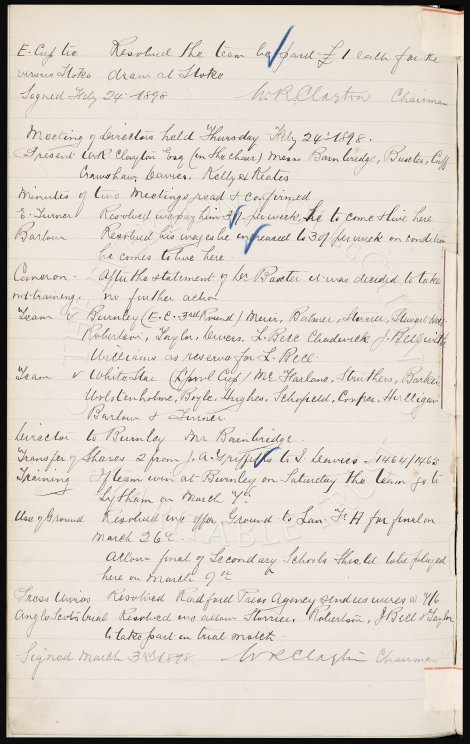 E. Cup tie Resolved the team be paid £1 each for the
versus Stoke draw at Stoke
Signed Feby 24th 1898 W.R. Clayton Chairman
Meeting of Directors held Thursday Feby 24th 1898.
Present W.R. Clayton Esq (in the chair) Messrs Bainbridge, Baxter, Cuff
Crawshaw, Davies, Kelly & Keates
Minutes of two Meetings read & confirmed
E. Turner Resolved we pay him per week, he to come & live here
Barlow Resolved his wages be increased to 30/ per week on condition
he comes to live here.
Cameron - After the statement of Dr Baxter it was decided to take
not training. no further action
Team v Burnley (E.C. 3rd Round) Muir, Balmer, Storrier, Stewart
Robertson, Taylor, Divers, L. Bell Chadwick J. Bell with
Williams as reserve for L. Bell
Team v White Star (Lpool Cup) McFarlane, Struthers, Barker
Wolstenholme, Boyle, Hughes, Schofield,
Barlow & Turner
Director to Burnley Mr Bainbridge.
Transfer of Shares 2 from J.A. Griffiths to D. Davies. 1464/1465
Training If team win at Burnley on Saturday the team go to
Lytham on March 7th
Use of Ground Resolved we offer Ground to Lan. F. A for final on
March 26th
Allow final of Secondary Schools Shield to be played
here on March 9th
Press Wires Resolved Radford Press Agency send us wires @ 7/6
Anglo Scots trial Resolved we allow Storrier, Robertson, J Bell & Taylor
to take part in trial match.
Signed March 3rd 1898. W R Clayton Chairman